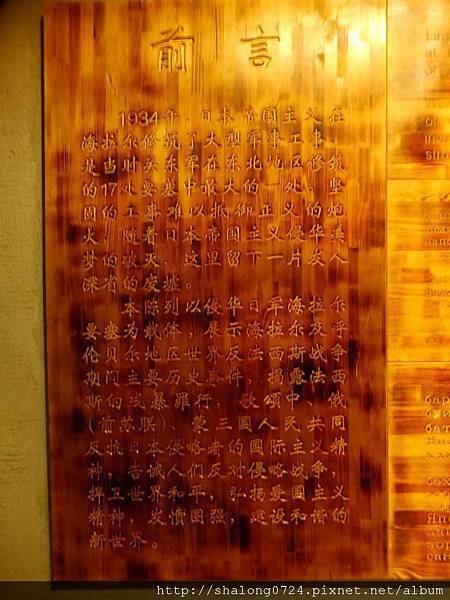 前言
1934年，日本帝国主义在
海拉尔修筑了大型军事工事，
是当时关东军在东北地区修筑
的17处要塞中最大的一处。坚
固的工事难以抵御正义的炮
火，随着日本帝国主义侵华美
梦的破灭，这里留下一片发人
深省的废墟。
本陈列以侵华日军海拉尔
要塞为载体，展示海拉尔及呼
伦贝尔地区世界反法西斯战争
期间的主要历史事件，揭露法西
斯的残暴罪行，歌颂中、俄
(前苏联)、蒙三国人民共同
反抗日本侵略者的国际主义精
神，告诫人们反对侵略战争，
捍卫世界和平，弘扬爱国主义
精神，发愤图强，建设和谐的
新世界。
http://shalong0724.pixnet.net/album